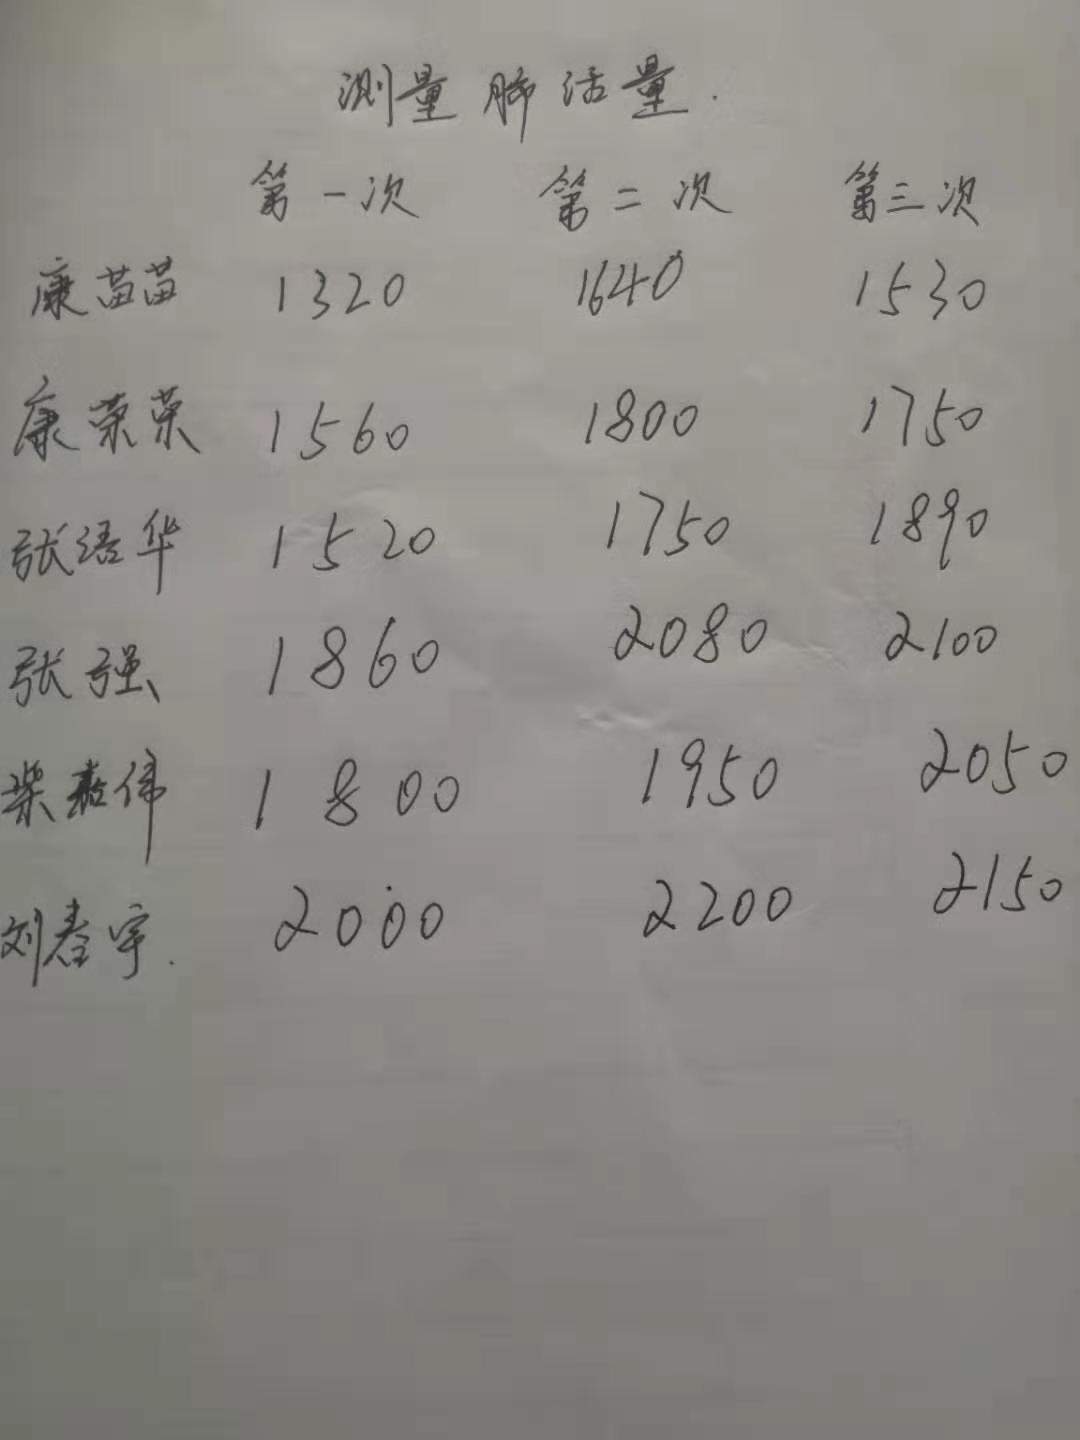 测量肺活量.
第一次 第二次 第三次
康苗苗 1320 1640 1530
康荣荣 1560 1800 1750
张语华 1520 1750 1890
张强 1860 2080 2100
柴嘉伟 1800 1950 2050
刘春宇. 2000 2200 2150